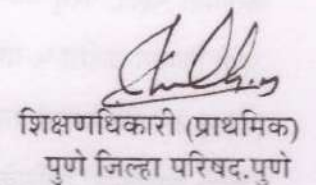 शिक्षणधिकारी (प्राथमिक)
पुणे जिल्हा परिषद.पुणे